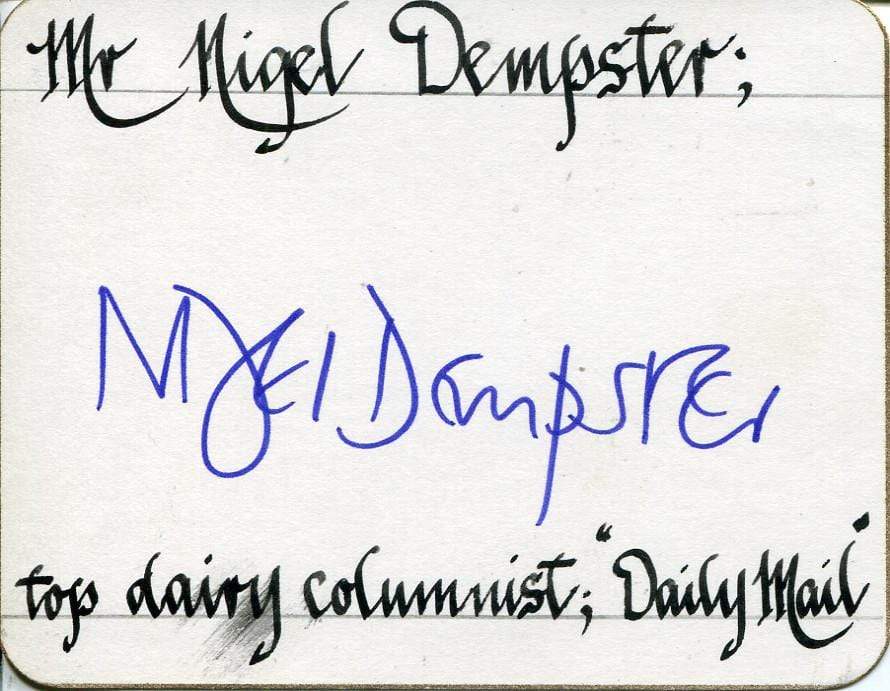 Mr Nigel Dempster;
Nigel Dempster
top dairy columnist; "Daily Mail"